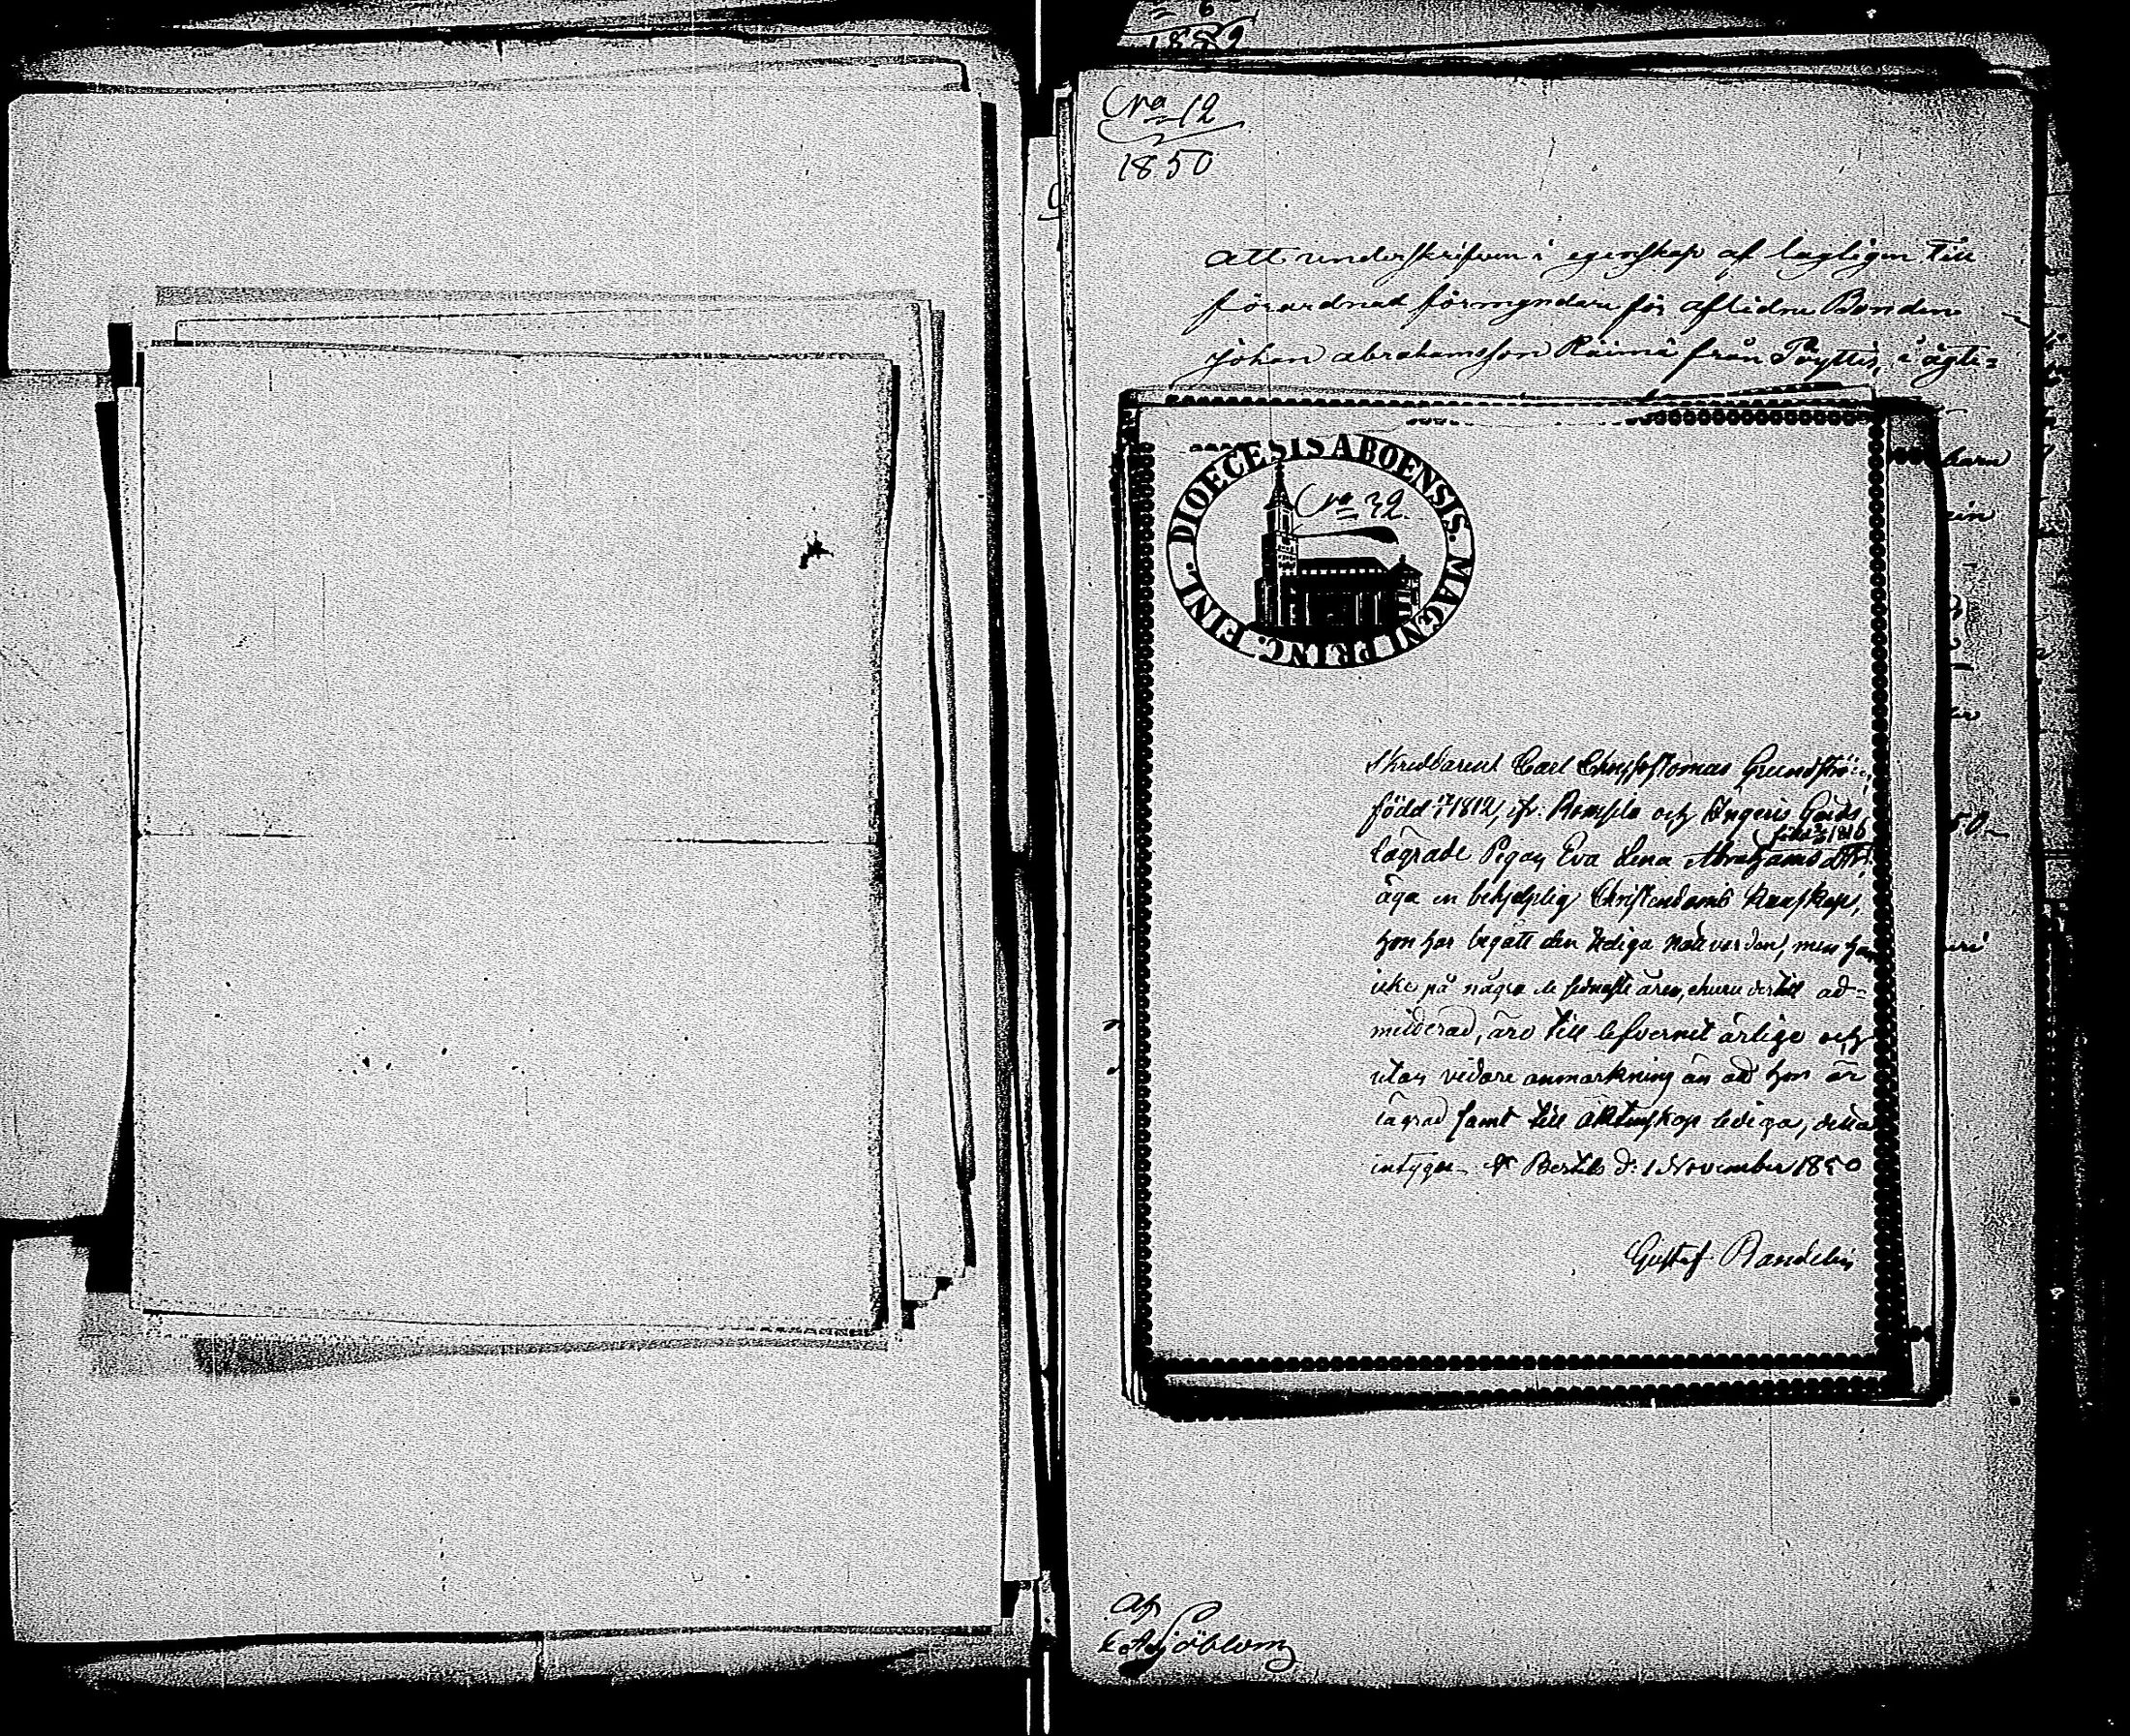 N:o 12
1850
att underskrifven i egenskap af lagligen till
förordnad förmyndare för aflidne Bonden
Johan abrahamsson Räimä från Pöyttis, i ägte=
barn
ein
DIOECESIS ABOENSIS. MAGNI PRINC. FINL.
N:o 32.
Skreddaren Carl Chrysostomus Grundström,
född 1812, ifr. och Ingeris Gårds
född 1816
lägrade Pigan Eva Lena Abrahams dotter
äga en behjelplig Christendoms kunskap,
hon har begått den Heliga Nattvarden, men han
icke på några de sednaste åren, ehuru dertill ad=
mitterad, äro till lefvernet ärlige och
utan vidare anmärkning än att hon är
lägrad samt till äktenskap lediga, detta
intygar S:t Bertils d: 1 November 1850
Gustaf Bandelin
af
Sjöblom